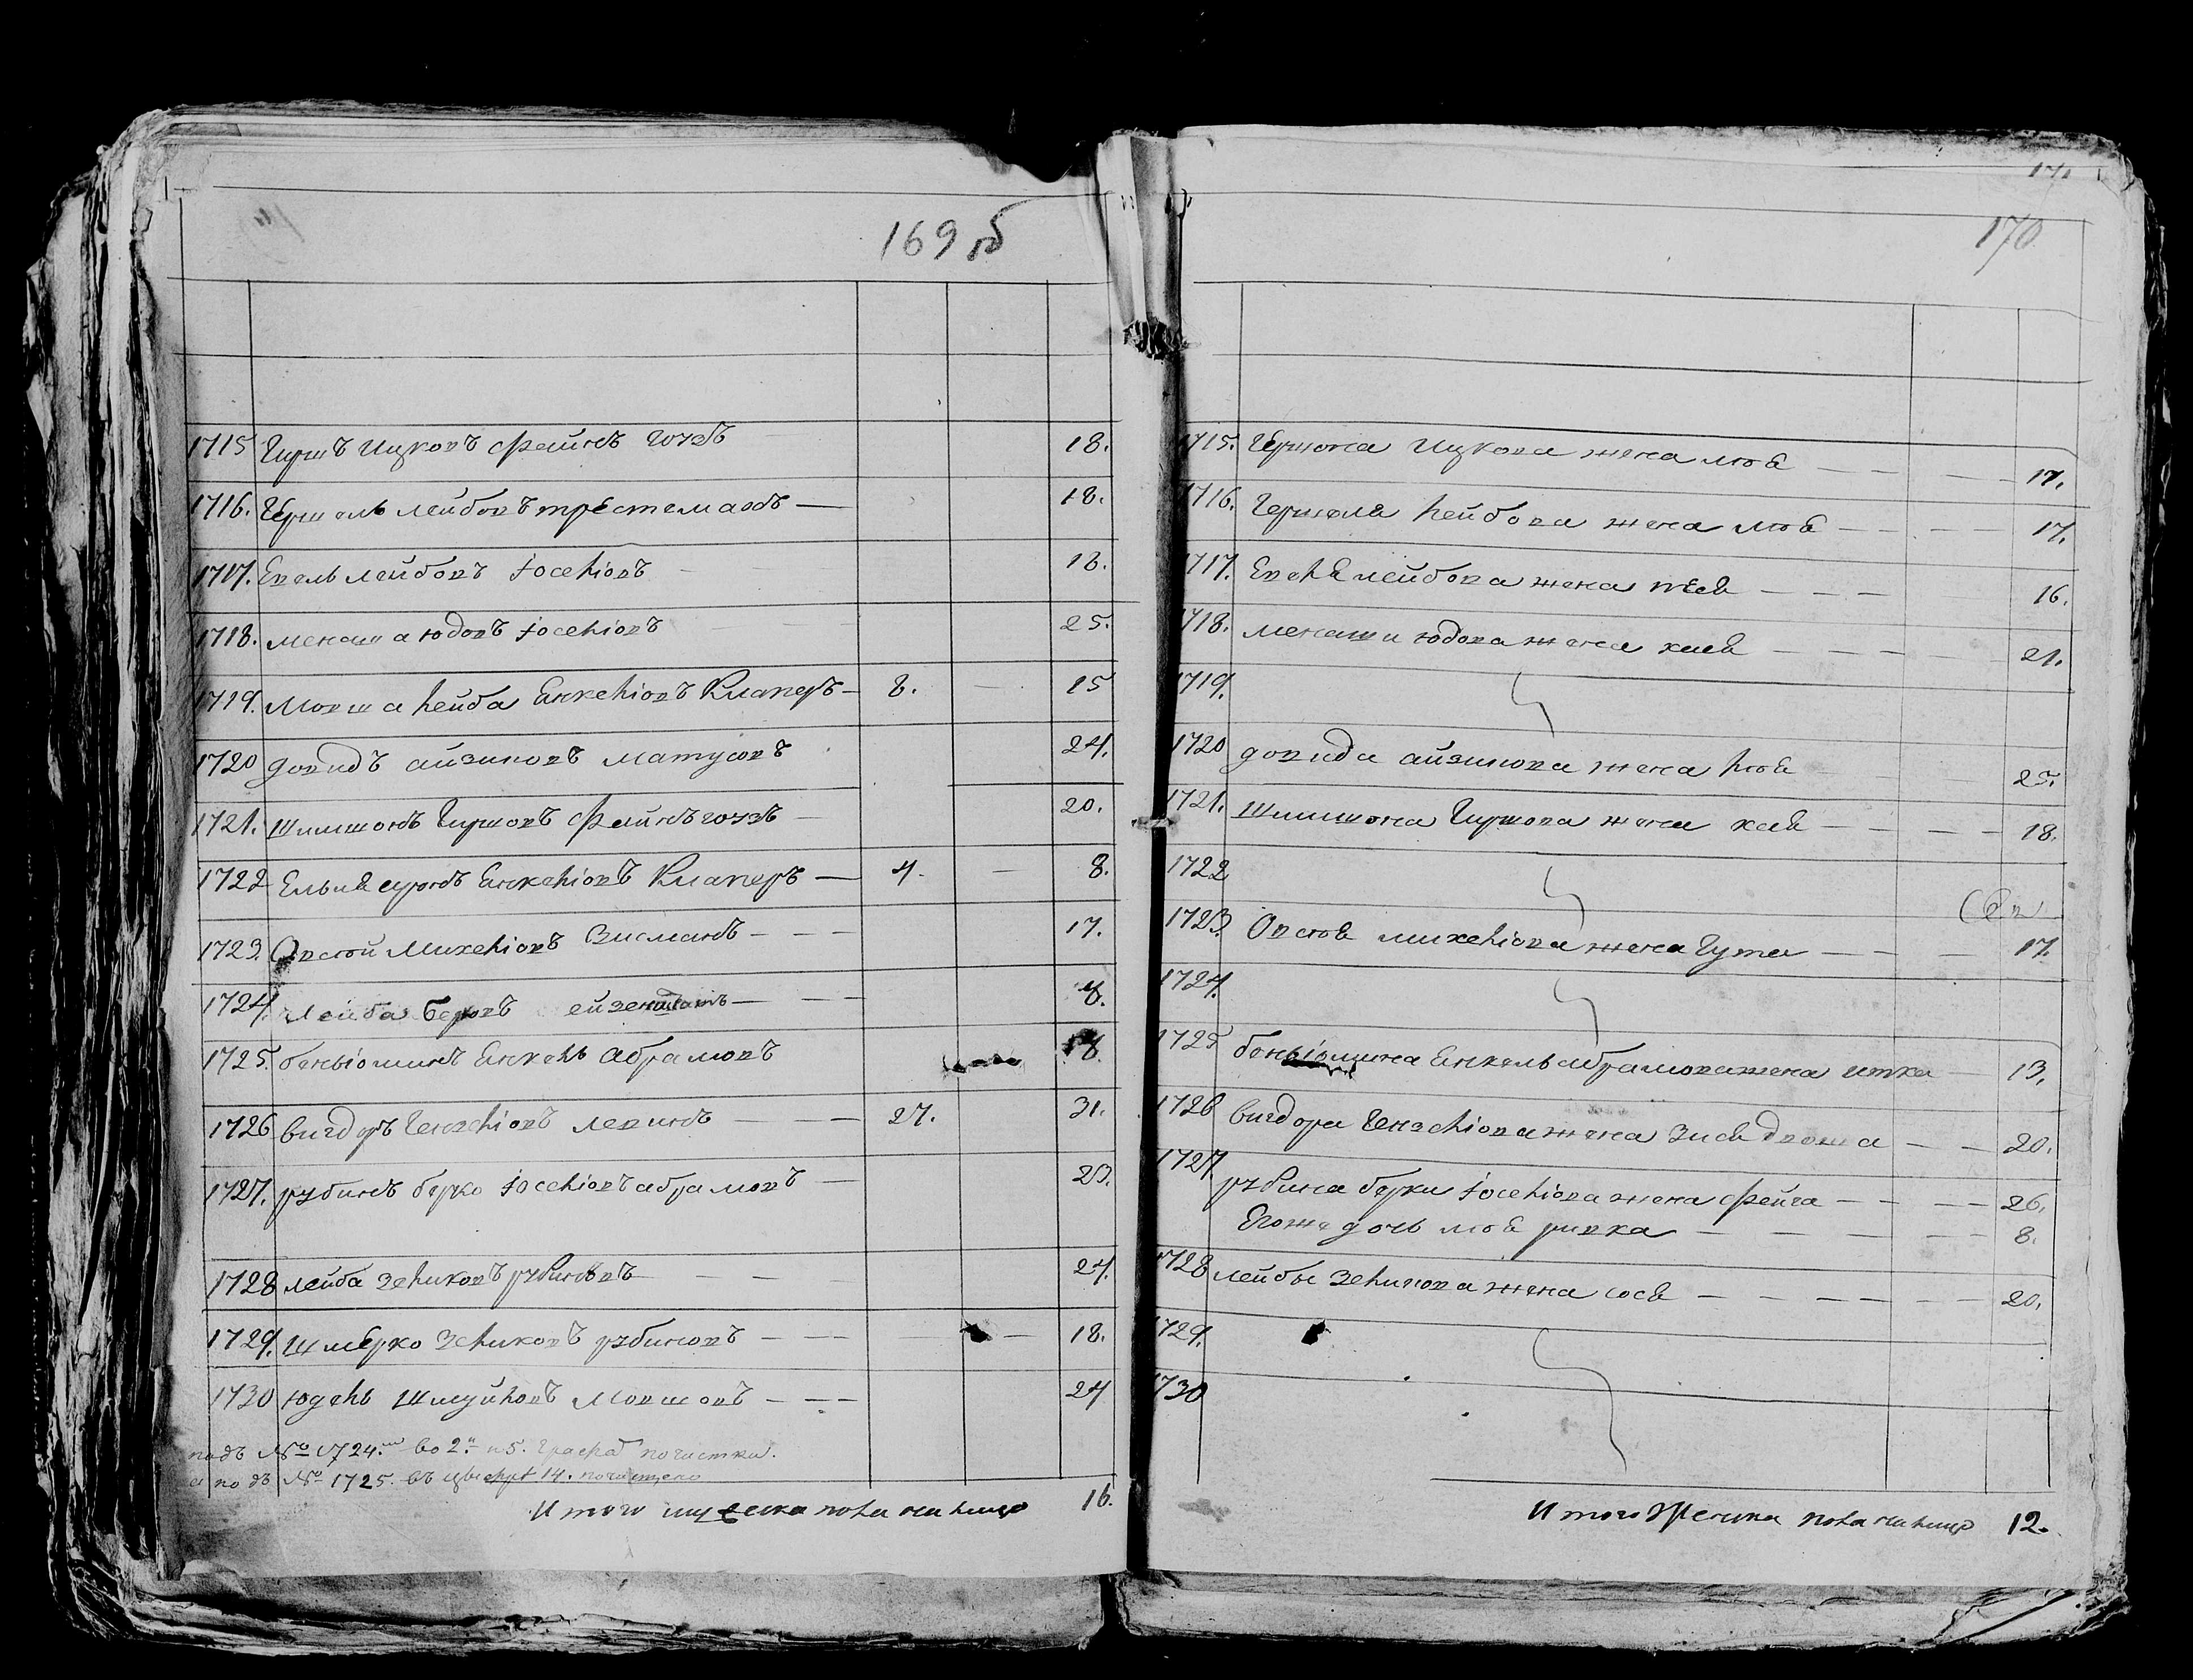 169 об
1715 Гиршъ Ицковъ Файнъ гочзъ 18.
1716. Гершель лейбовъ трестеманъ 18.
1717. Евель лейбовъ Іоселіовъ 18.
1718. Менаша юдовъ Іоселіовъ 25.
1719. Мовша лейба Енкеліовъ Клаперъ 8. 15
1720 довидъ айзиковъ матусовъ 24.
1721. Шлишонъ Гиршовъ Файнъ гочзъ 20.
1722 Ельѣ сухонъ Енкеліовъ Клаперъ 4. 8.
1723. Овстой Михеліовъ Висманъ 17.
1724. лейба Берковъ 8.
1725. беньіоминъ Енкель абрамовъ 18.
1726 вигдоръ Гензеліовъ левинъ 27. 31.
1727. рубинъ берко Іоселіовъ абрамовъ 23.
1728 лейба Зеликовъ рубиновъ 24.
1729. Шмерко Зеликовъ рубиновъ 18.
1730 юдель Шмуйловъ Мовшовъ 24
подъ № 1724. во 2.й и 5. графа почистки.
а подъ № 1725. въ цыфрѣ 14. почищено
Итого мужеска пола на лицо 16.
171
170
1715. Гершона Ицкова жена люѣ 17.
1716. Гершеля лейбова жена люѣ 17.
1717. Евеля лейбова жена песѣ 16.
1718. менаши юдова жена хаѣ 21.
1719.
1720 довида айзикова жена люѣ 25.
1721. Шлишона Гиршова жена хаѣ 18.
1722
1723. Овстоѣ михеліова жена Гута 17.
1724.
1725 беньіомина Енкель абрамова жена итка 13.
1726 вигдора Гензеліова жена Зисѣ двоша 20.
1727. рубина берки Іоселіова жена Фейга 26.
Егоже дочь люѣ ривка 8.
1728 лейбы Зеликова жена сосѣ 20.
1729.
1730
Итого Женска пола на лицо 12.